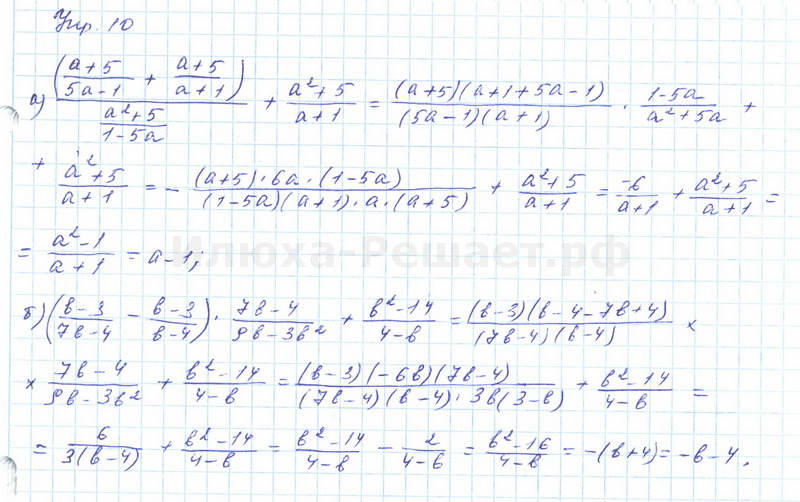 Упр. 10
а) ((a+5)/(5a-1) + (a+5)/(a+1)) / ((a²+5)/(1-5a)) + (a²+5)/(a+1) = (a+5)(a+1+5a-1)/((5a-1)(a+1)) · (1-5a)/(a²+5a) +
+ (a²+5)/(a+1) = - (a+5)·6a·(1-5a)/((1-5a)(a+1)·a·(a+5)) + (a²+5)/(a+1) = -6/(a+1) + (a²+5)/(a+1) =
= (a²-1)/(a+1) = a-1;
Илюха-Решает.рф
б) ((в-3)/(7в-4) - (в-3)/(в-4)) · (7в-4)/(9в-3в²) + (в²-14)/(4-в) = (в-3)(в-4-7в+4)/((7в-4)(в-4)) ×
× (7в-4)/(9в-3в²) + (в²-14)/(4-в) = (в-3)(-6в)(7в-4)/((7в-4)(в-4)·3в(3-в)) + (в²-14)/(4-в) =
= 6/(3(в-4)) + (в²-14)/(4-в) = (в²-14)/(4-в) - 2/(4-в) = (в²-16)/(4-в) = -(в+4) = -в-4.